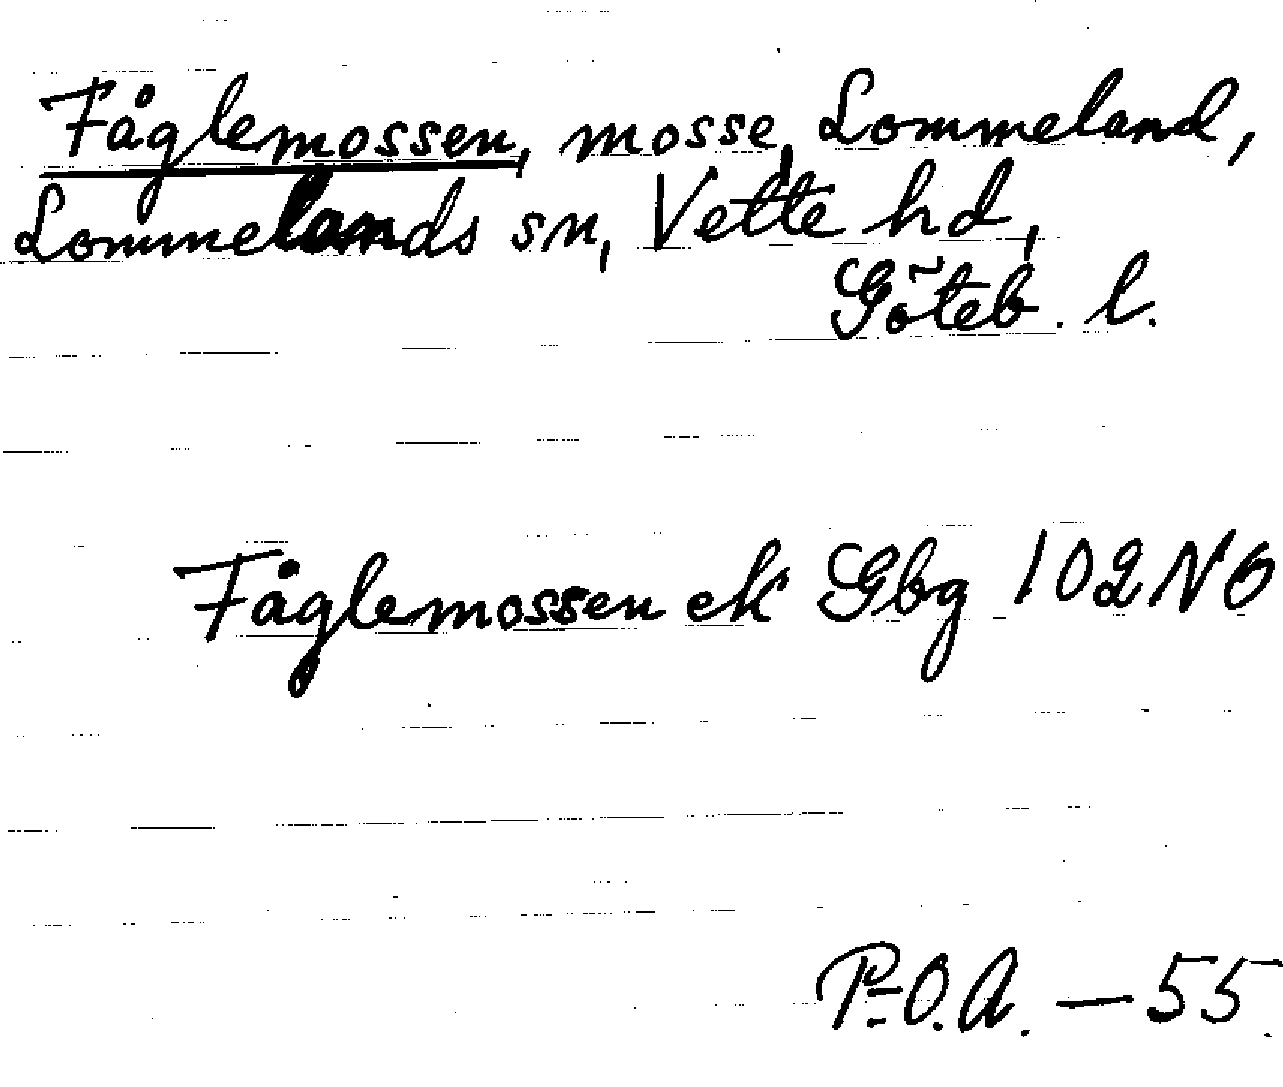 Fåglemossen, mosse, Lommeland,
Lommelands sn, Vette hd,
Göteb. l.
Fåglemossen ek Gbg 102 NO
P-O.A. — 55.